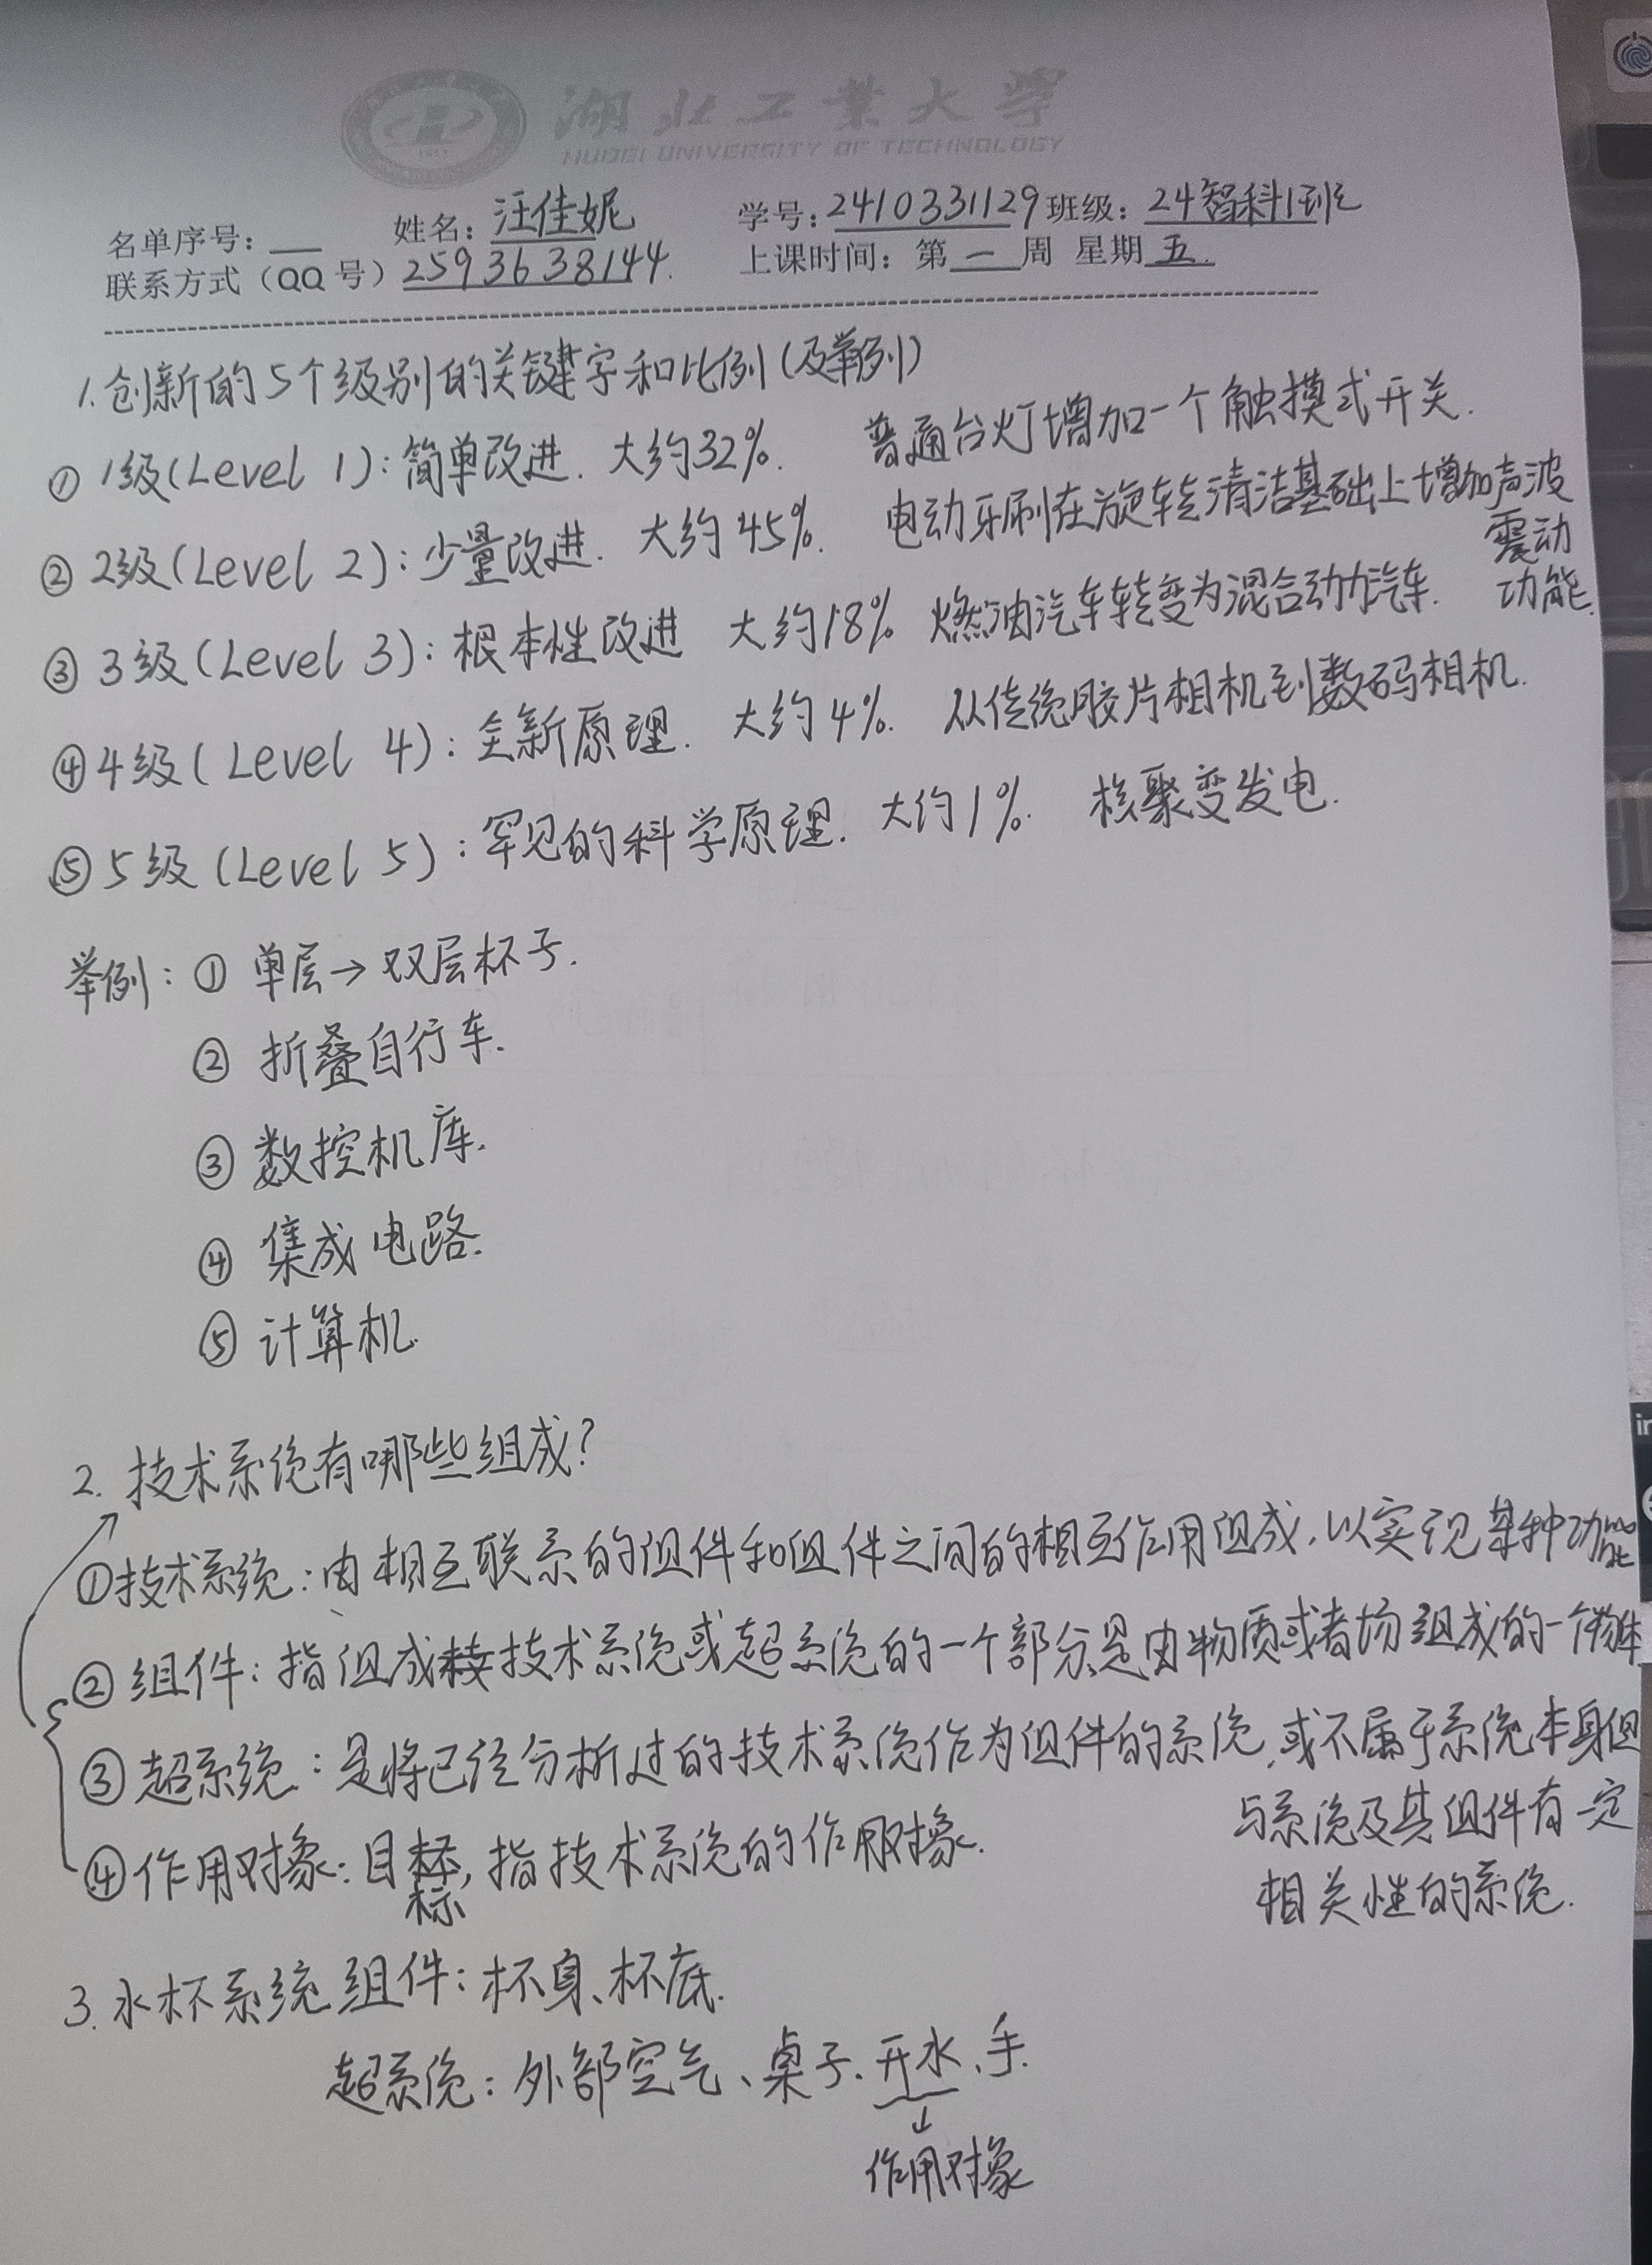 湖北工业大学
HUBEI UNIVERSITY OF TECHNOLOGY
名单序号: 姓名: 汪佳妮 学号: 2410331129 班级: 24智科1班
联系方式(QQ号) 2593638144. 上课时间: 第一周 星期五.
1.创新的5个级别的关键字和比例(及举例)
① 1级(Level 1): 简单改进. 大约32%. 普通台灯增加一个触摸式开关.
② 2级(Level 2): 少量改进. 大约45%. 电动牙刷在旋转清洁基础上增加声波
震动
功能.
③ 3级(Level 3): 根本性改进 大约18% 燃油汽车转变为混合动力汽车.
④ 4级(Level 4): 全新原理. 大约4%. 从传统胶片相机到数码相机.
⑤ 5级(Level 5): 罕见的科学原理. 大约1%. 核聚变发电.
举例: ① 单层→双层杯子.
② 折叠自行车.
③ 数控机库.
④ 集成电路.
⑤ 计算机.
2. 技术系统有哪些组成?
①技术系统: 由相互联系的组件和组件之间的相互作用组成, 以实现某种功能
②组件: 指组成技术系统或超系统的一个部分,是由物质或者场组成的一个物体
③超系统: 是将已经分析过的技术系统作为组件的系统, 或不属于系统本身但
与系统及其组件有一定
相关性的系统.
④作用对象: 目标, 指技术系统的作用对象.
3. 水杯系统组件: 杯身、杯底.
超系统: 外部空气、桌子、开水、手.
↓
作用对象
in